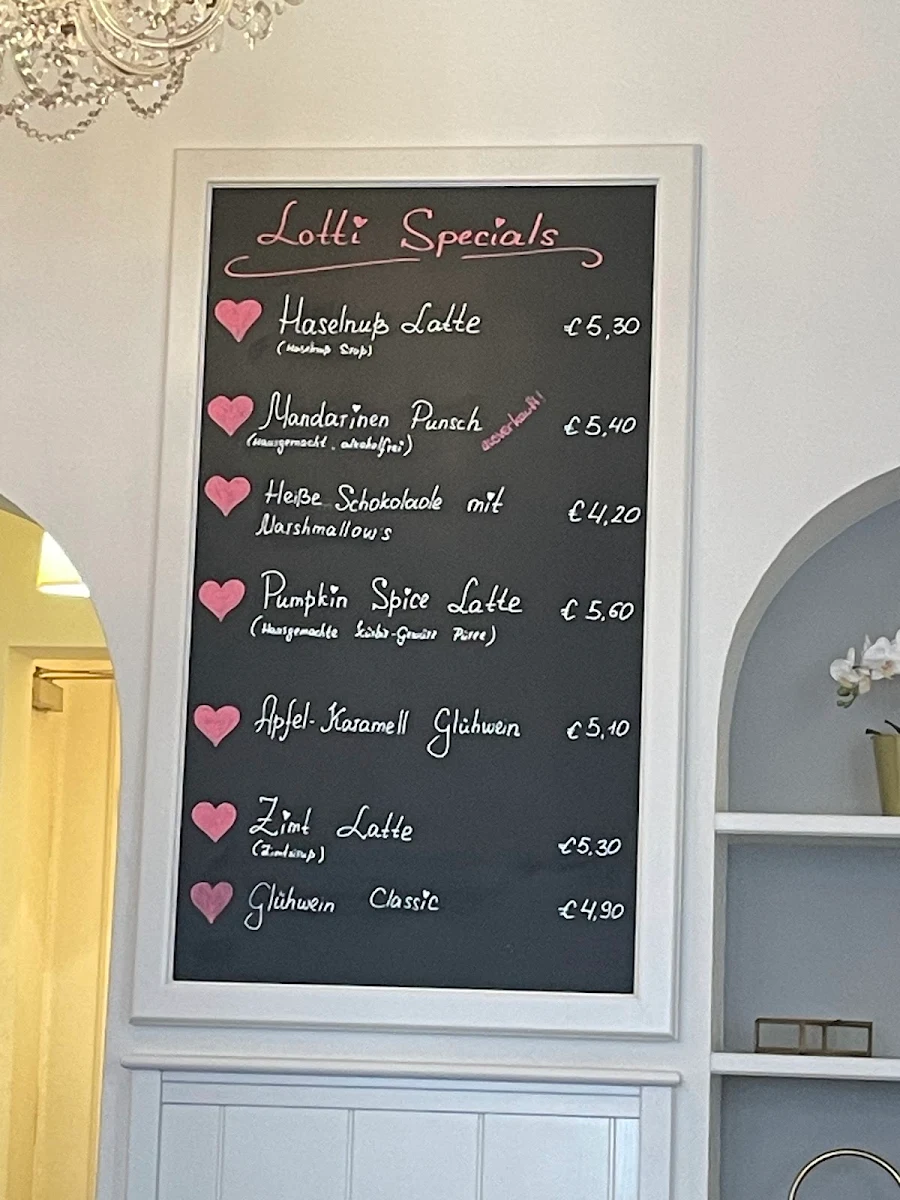 Lotti Specials
Haselnuß Latte €5,30
(Haselnuß Sirup)
Mandarinen Punsch ausverkauft! €5,40
(Hausgemacht, alkoholfrei)
Heiße Schokolade mit €4,20
Marshmallows
Pumpkin Spice Latte €5,60
(Hausgemachte Kürbis-Gewürz Püree)
Apfel-Karamell Glühwein €5,10
Zimt Latte €5,30
(Zimtsirup)
Glühwein Classic €4,90